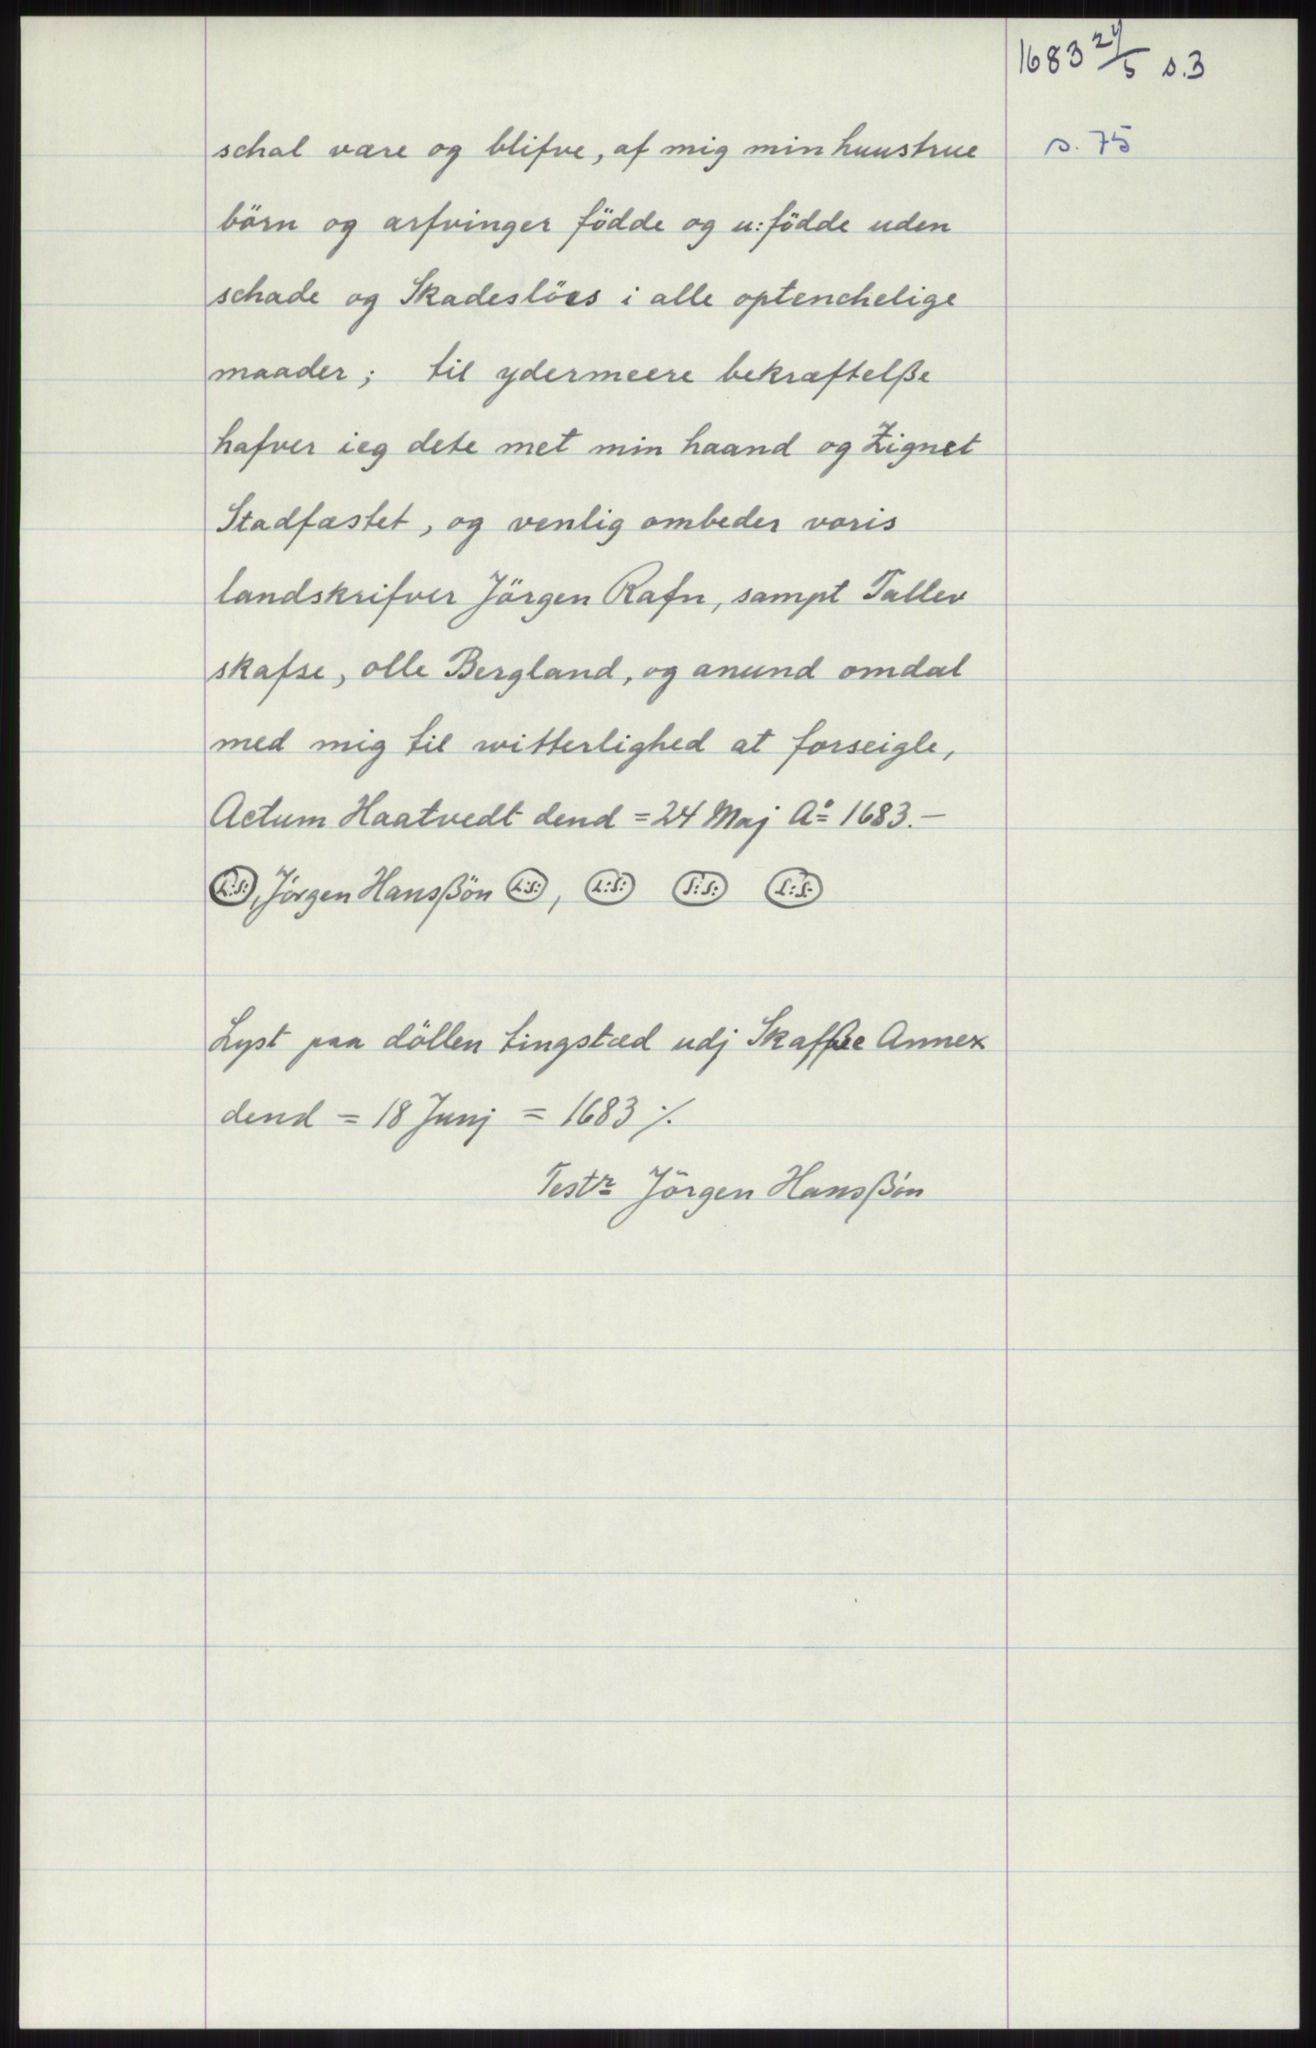 1683 24/5 s.3
s. 75
schal være og blifve, af mig min huustrue
börn og arfvinger födde og u:födde uden
schade og Skadeslöes i alle optenchelige
maader; til ydermeere bekræftelße
hafver ieg dete met min haand og Zignet
Stadfæstet, og venlig ombeder voris
landskrifver Jörgen Rafn, sampt Tallev
skafse, olle Bergland, og anund omdal
med mig til witterlighed at forseigle,
Actum Haatvedt dend = 24 Maj Aº= 1683.-
L:S:, Jörgen Hansßön L:S:, L:S: L:S: L:S:
Lyst paa döllen tingstæd udj Skafße Annex
dend = 18 Junj = 1683 ./.
Testr= Jörgen Hansßön